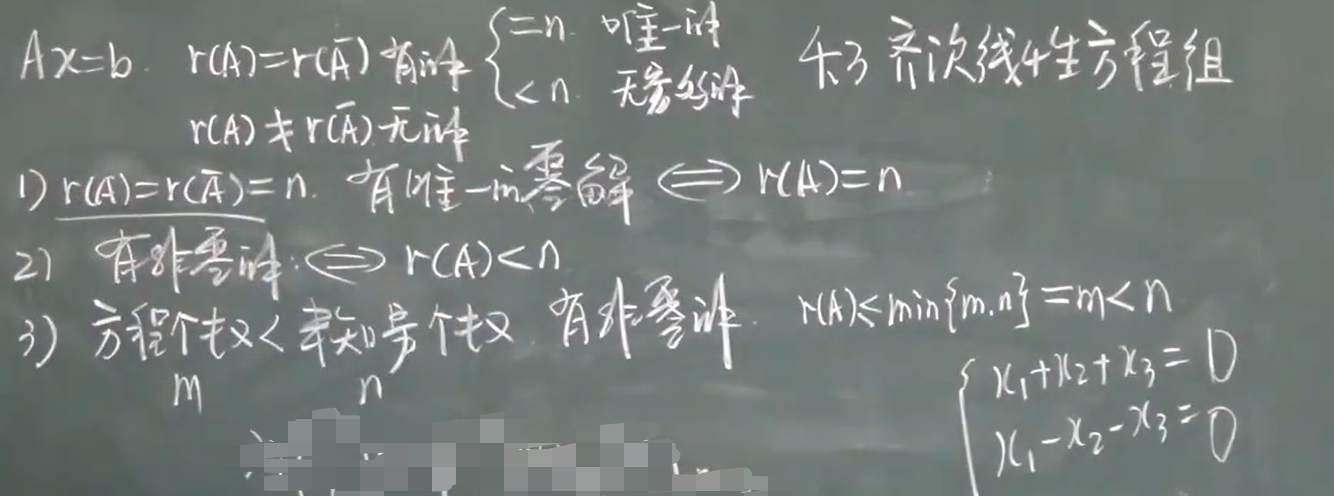 Ax=b. r(A)=r(Ā) 有解 { =n. 唯一解
<n. 无穷多解
r(A)≠r(Ā) 无解
4.3 齐次线性方程组
1) r(A)=r(Ā)=n. 有唯一的零解 ⟺ r(A)=n
2) 有非零解. ⟺ r(A)<n
3) 方程个数<未知量个数 有非零解. r(A)≤min{m.n}=m<n
m n
{ x₁+x₂+x₃=0
x₁-x₂-x₃=0